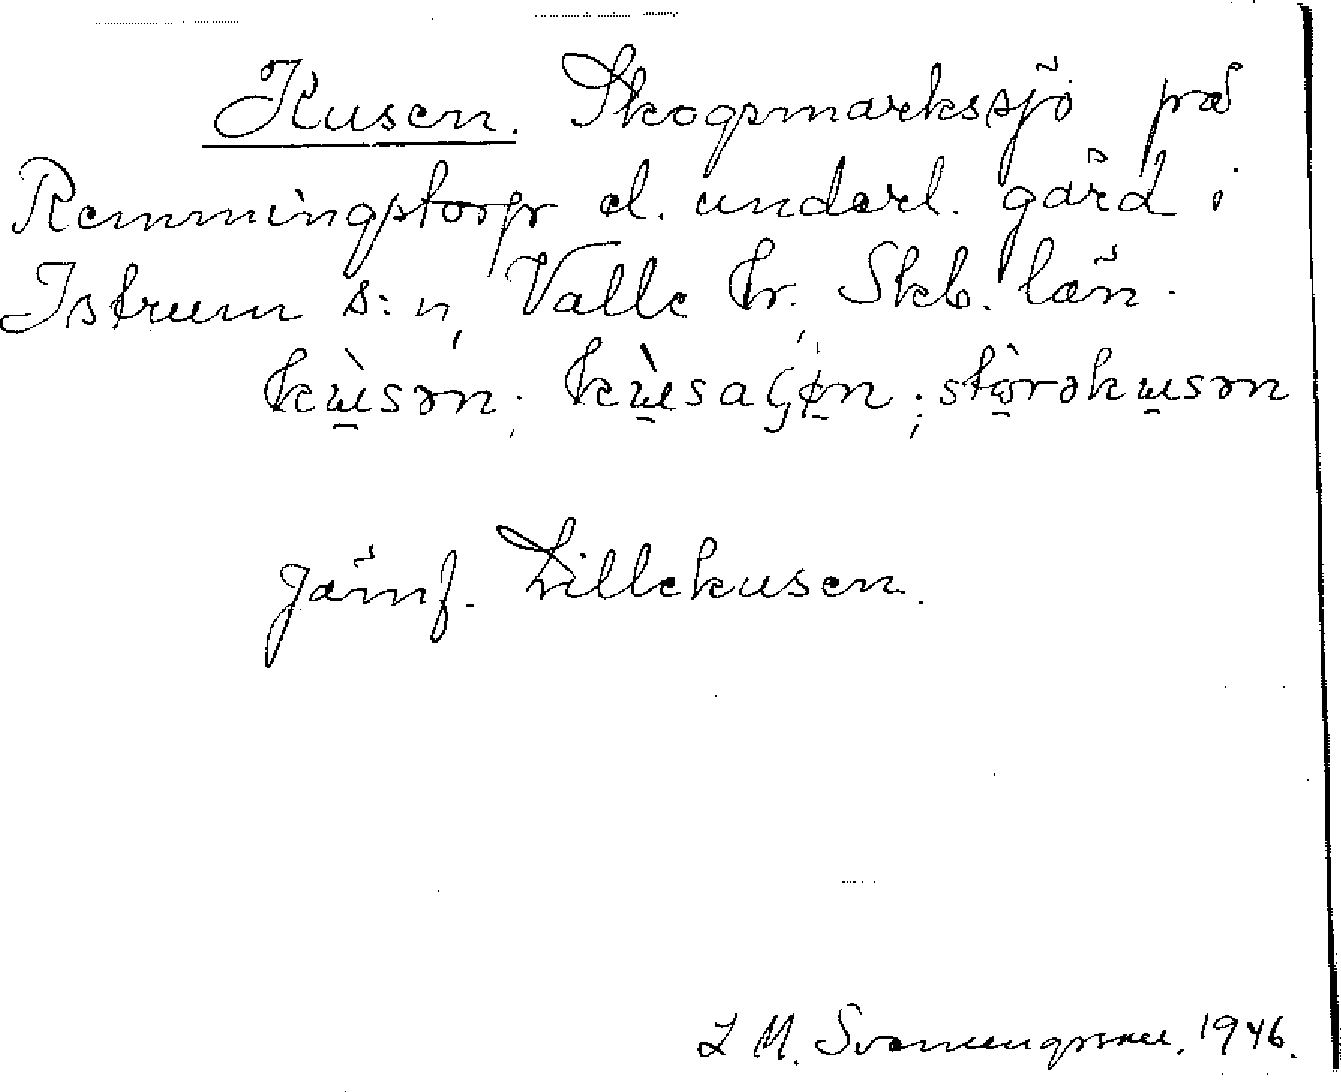 Kusen. Skogsmarkssjö på
Remmingstorp el. underl. gård i
Istrum s:n, Valle hr., Skb. län.
kùsən; kùsaɕøn; stòrəkusən
Jämf. Lillekusen.
L M. Svanungsson, 1946.